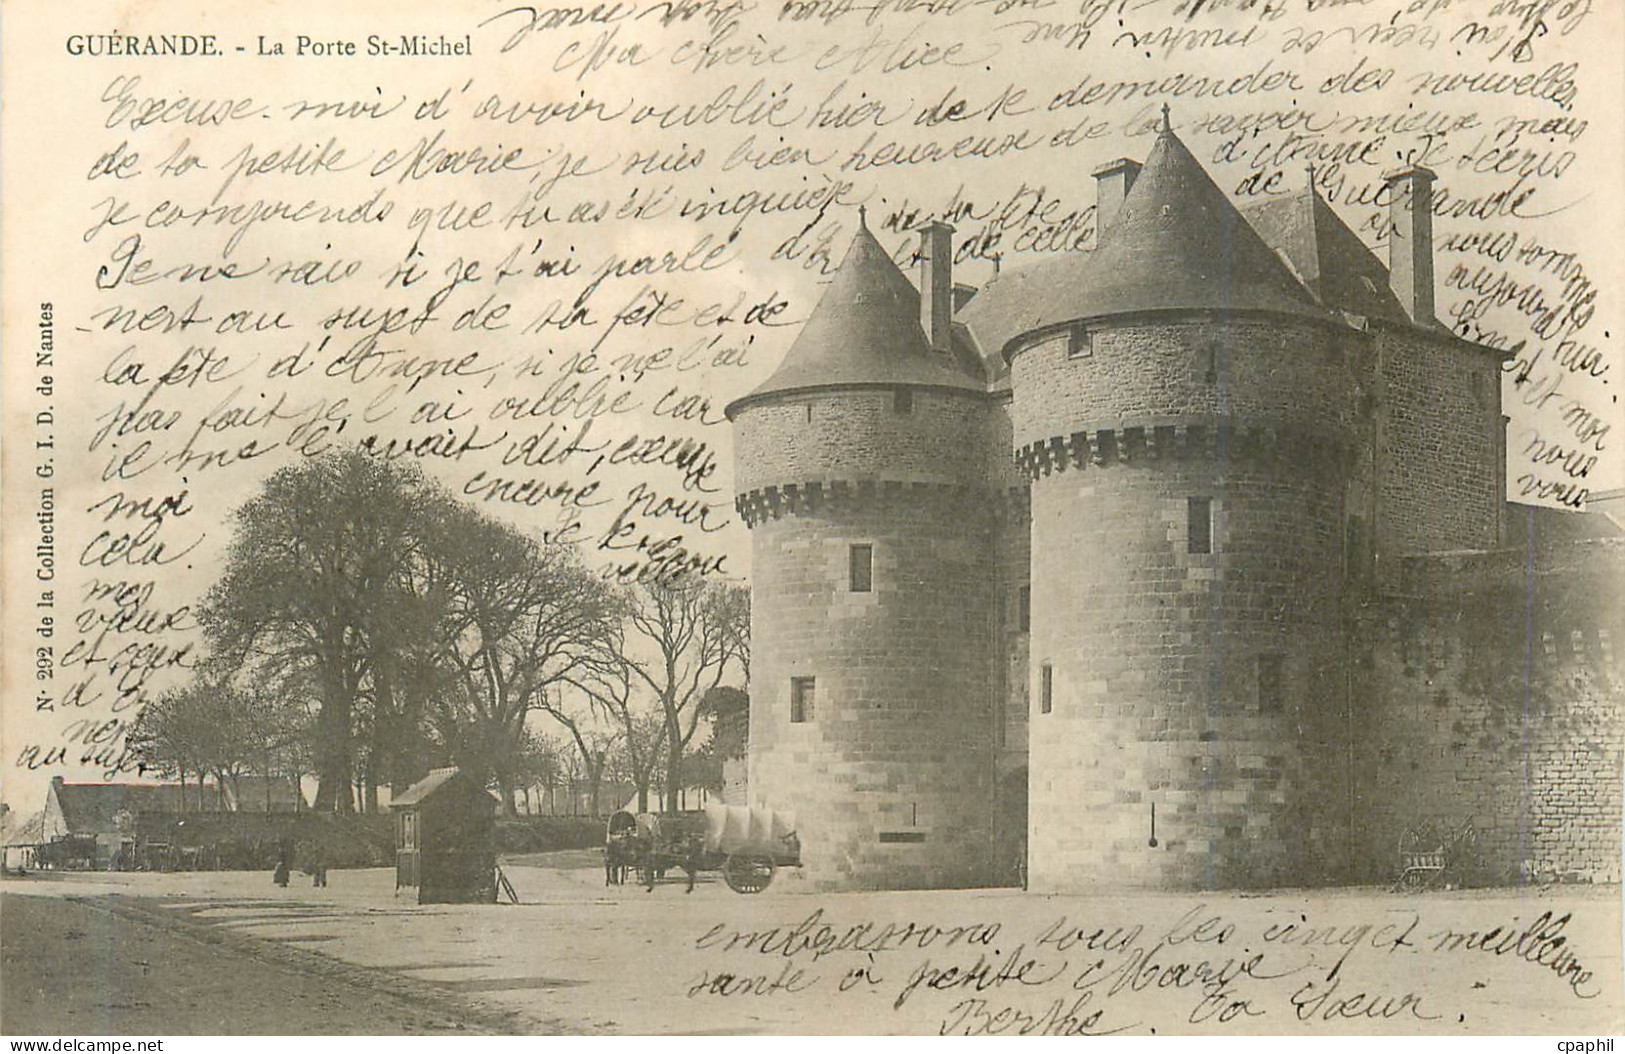 GUÉRANDE. - La Porte St-Michel
Ma chère Alice.
Excuse-moi d'avoir oublié hier de te demander des nouvelles
de ta petite Marie, je suis bien heureuse de la savoir mieux mais
je comprends que tu as été inquiète.
Je ne sais si je t'ai parlé
au sujet de ta fête et de
la fête d'Anne, si je ne l'ai
pas fait je l'ai oublié car
il me l'avait dit, excuse
moi encore pour
cela. Je te
mes
vœux
et ceux
d'Er
nest
au sujet
de ta fête
et de celle
d'Anne. Je t'écris
de Guérande
où nous sommes
aujourd'hui.
et moi
nous
vous
embrassons tous les cinq et meilleure
santé à petite Marie
Ta Sœur.
Berthe.
N° 292 de la Collection G. I. D. de Nantes
cpaphil